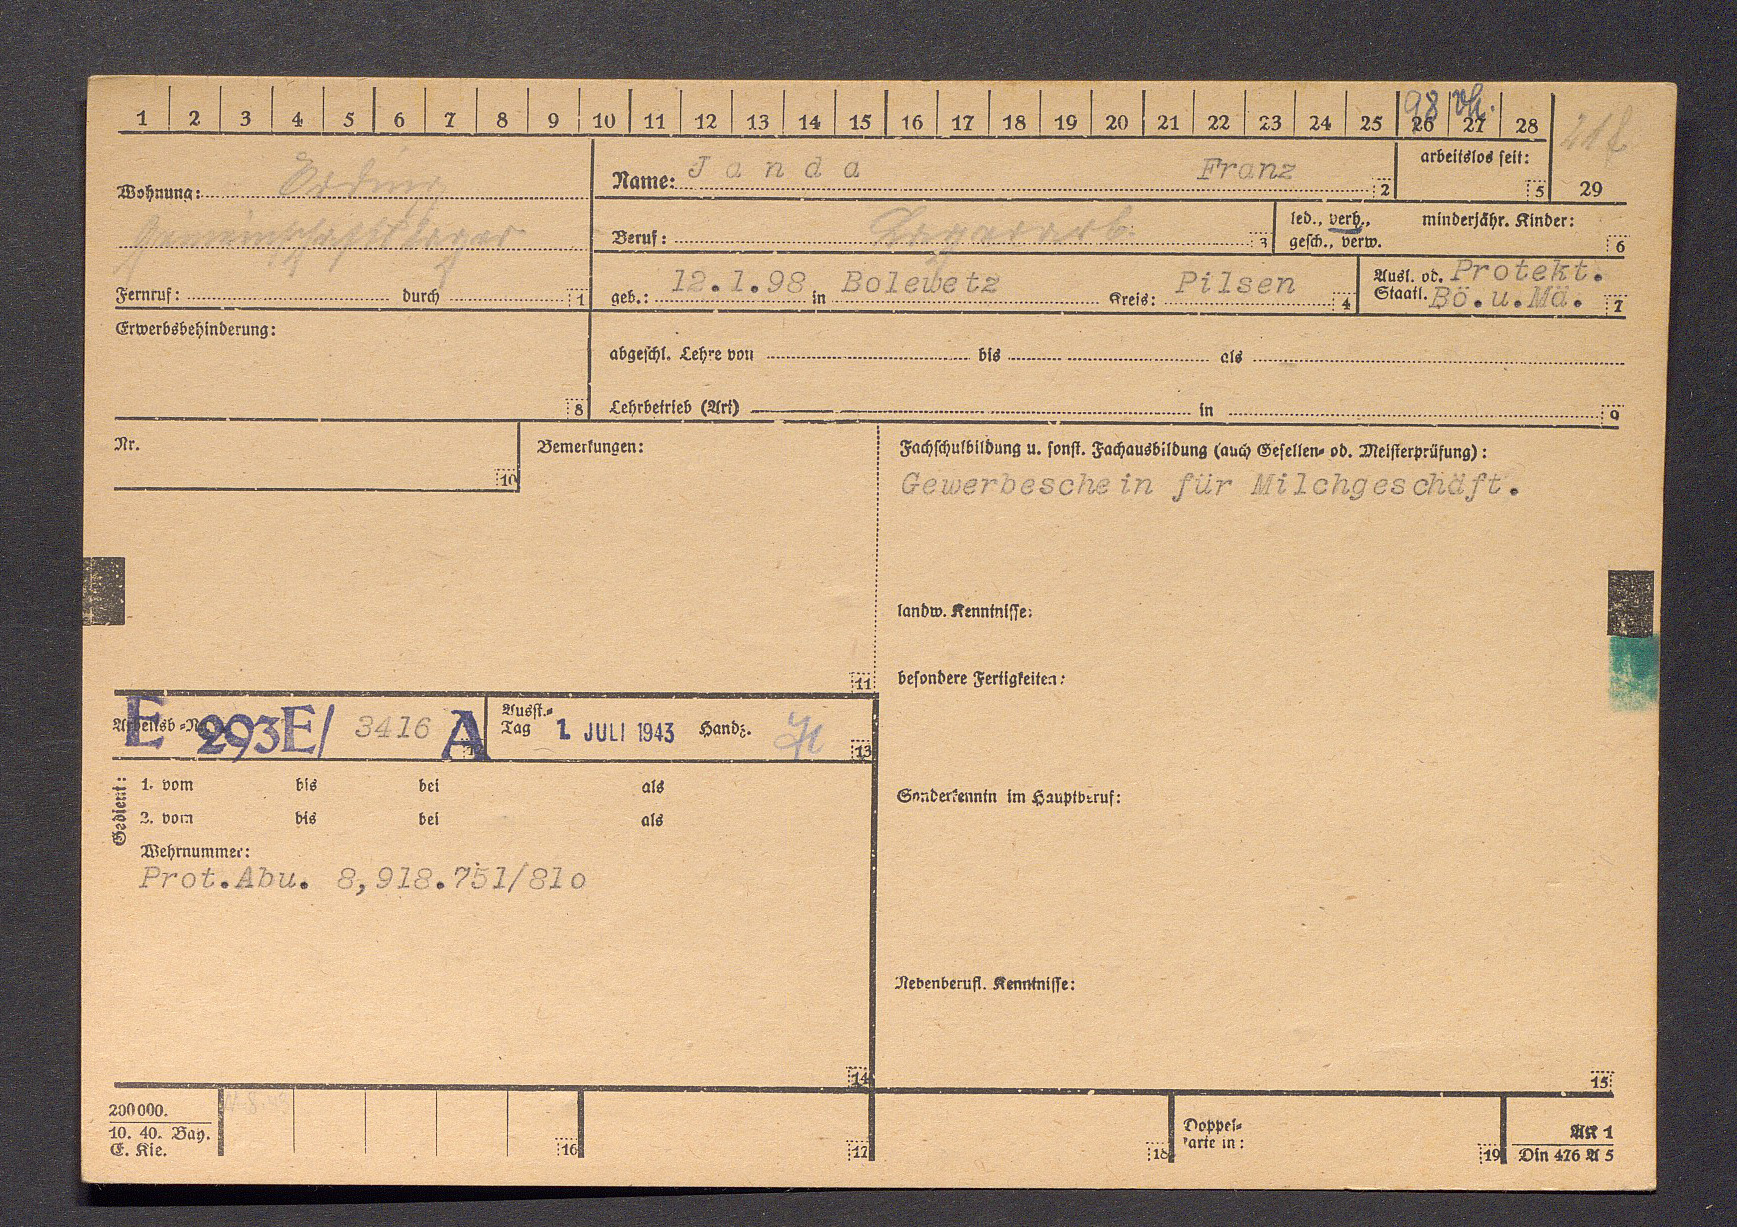 1 2 3 4 5 6 7 8 9 10 11 12 13 14 15 16 17 18 19 20 21 22 23 24 25 26 27 28
98 vh.
Wohnung: Erding
Gemeinschaftslager
Fernruf: durch 1
Name: Janda Franz 2
arbeitslos seit: 5
29
Beruf: Lagerarb. 3
led., verh., gesch., verw.
minderjähr. Kinder: 6
geb.: 12.1.98 in Bolewetz Kreis: Pilsen 4
Ausl. od. Staatl. Protekt. Bö.u.Mä. 7
Erwerbsbehinderung: 8
abgeschl. Lehre von bis als
Lehrbetrieb (Art) in 9
Nr. 10
Bemerkungen: 11
Fachschulbildung u. sonst. Fachausbildung (auch Gesellen- od. Meisterprüfung):
Gewerbeschein für Milchgeschäft.
landw. Kenntnisse:
besondere Fertigkeiten:
Arbeitsb.-Nr. E 293E/ 3416 A 12
Ausst.-Tag 1. JULI 1943 Handz. 13
Sonderkenntn im Hauptberuf:
Gedient:
1. vom bis bei als
2. vom bis bei als
Wehrnummer:
Prot.Abu. 8,918.751/81o
14
Nebenberufl. Kenntnisse:
15
200000.
10. 40. Bay.
E. Kie.
16 17 18
Doppel-
karte in: 19
AK 1
Din 476 A 5